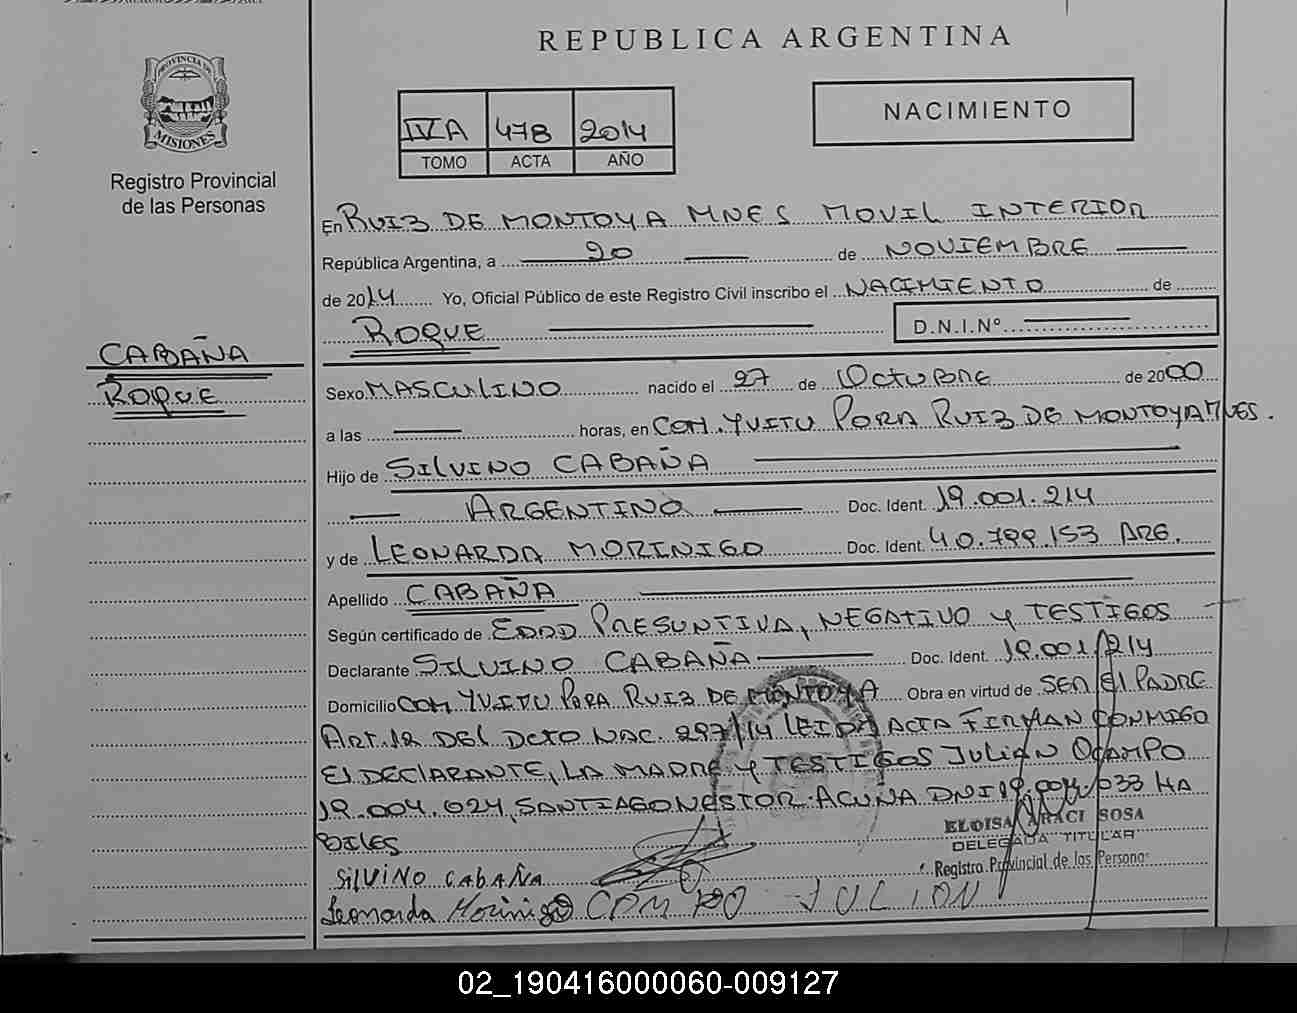 REPUBLICA ARGENTINA
PROVINCIA DE
MISIONES
Registro Provincial
de las Personas
IVA 478 2014
TOMO ACTA AÑO
NACIMIENTO
En RUIZ DE MONTOYA MNES MOVIL INTERIOR
República Argentina, a 20 de NOVIEMBRE
de 2014 Yo, Oficial Público de este Registro Civil inscribo el NACIMIENTO de
ROQUE D.N.I.Nº
CABAÑA
ROQUE
Sexo MASCULINO nacido el 27 de OCTUBRE de 2000
a las horas, en COM. YVITU PORA RUIZ DE MONTOYA MNES.
Hijo de SILVINO CABAÑA
ARGENTINO Doc. Ident. 19.001.214
y de LEONARDA MORINIGO Doc. Ident. 40.799.153 ARG.
Apellido CABAÑA
Según certificado de EDAD PRESUNTIVA, NEGATIVO Y TESTIGOS
Declarante SILVINO CABAÑA Doc. Ident. 19.001.214
Domicilio COM YVITU PORA RUIZ DE MONTOYA Obra en virtud de SER El PADRE
ART.12 DEL DCTO NAC. 297/14 LEIDA ACTA FIRMAN CONMIGO
El DECLARANTE, LA MADRE Y TESTIGOS JULIAN OCAMPO
19.004.024, SANTIAGO NESTOR ACUÑA DNI 19.004.033 HA
BILES
ELOISA ARACI SOSA
DELEGADA TITULAR
Registro Provincial de las Personas
SILVINO CABAÑA
Leonarda Morinigo JULION
02_190416000060-009127